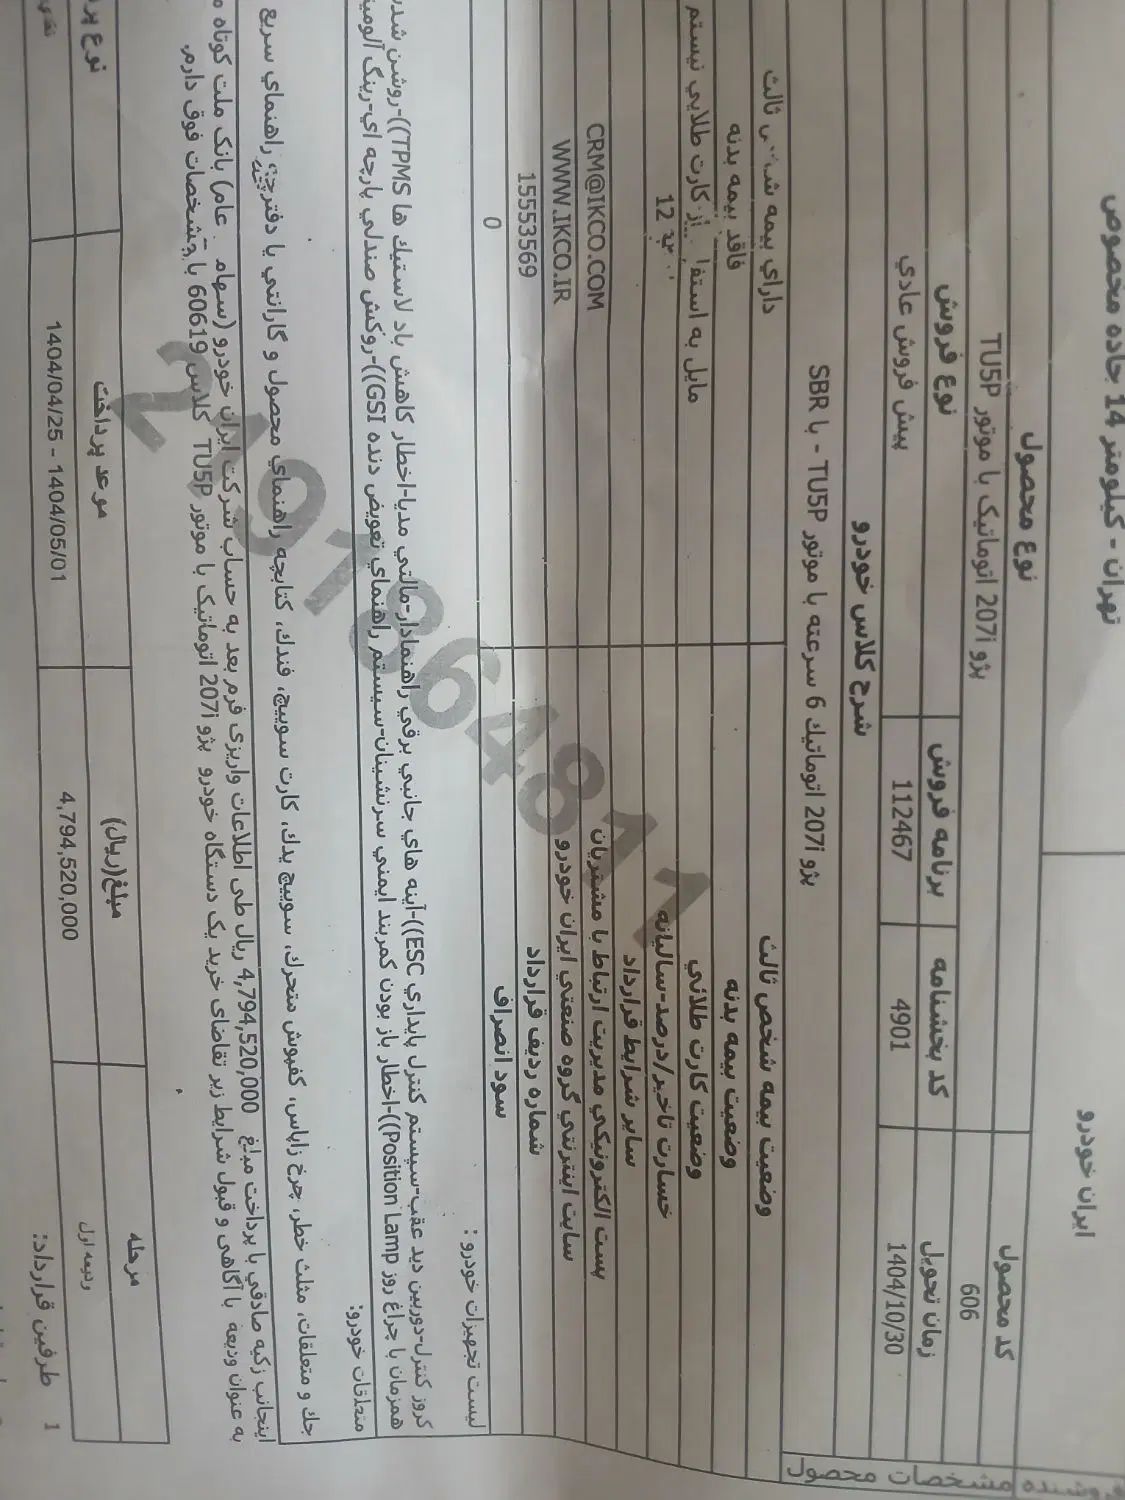 ایران خودرو
تهران - کیلومتر 14 جاده مخصوص
فروشنده
مشخصات محصول
کد محصول
نوع محصول
606
پژو 207i اتوماتیک با موتور TU5P
زمان تحویل
کد بخشنامه
برنامه فروش
نوع فروش
1404/10/30
4901
112467
پیش فروش عادي
شرح کلاس خودرو
پژو 207i اتوماتیك 6 سرعته با موتور TU5P - با SBR
وضعیت بیمه شخص ثالث
داراي بیمه ثالث
وضعیت بیمه بدنه
فاقد بیمه بدنه
وضعیت کارت طلائي
مایل به از کارت طلایي نیستم
خسارت تاخیر/درصد-سالیانه
12
سایر شرایط قرارداد
پست الکترونیکي مدیریت ارتباط با مشتریان
CRM@IKCO.COM
سایت اینترنتي گروه صنعتي ایران خودرو
WWW.IKCO.IR
شماره ردیف قرارداد
15553569
سود انصراف
0
لیست تجهیزات خودرو :
کروز کنترل-دوربین دید عقب-سیستم کنترل پایداري ESC))-آینه هاي جانبي برقي راهنمادار-مالتي مدیا-اخطار کاهش باد لاستیك ها TPMS))-روشن شدن
همزمان با چراغ روز Position Lamp))-اخطار باز بودن کمربند ایمني سرنشینان-سیستم راهنماي تعویض دنده GSI))-روکش صندلي پارچه اي-رینگ
متعلقات خودرو:
جك و متعلقات، مثلث خطر، چرخ زاپاس، کفپوش متحرك، سوییچ یدك، کارت سوییچ، فندك، کتابچه راهنماي محصول و گارانتي یا دفترچه راهنماي سریع
اینجانب زکیه صادقي با پرداخت مبلغ 4,794,520,000 ریال طی اطلاعات واریزی فرم بعد به حساب شرکت ایران خودرو (سهام عام) بانک ملت کوتاه
به عنوان ودیعه با آگاهی و قبول شرایط زیر تقاضای خرید یک دستگاه خودرو پژو 207i اتوماتیک با موتور TU5P کلاس 60619 با مشخصات فوق دارم.
مرحله
مبلغ(ریال)
موعد پرداخت
نوع
ودیعه اول
4,794,520,000
1404/04/25 - 1404/05/01
نقدي
1 طرفین قرارداد: